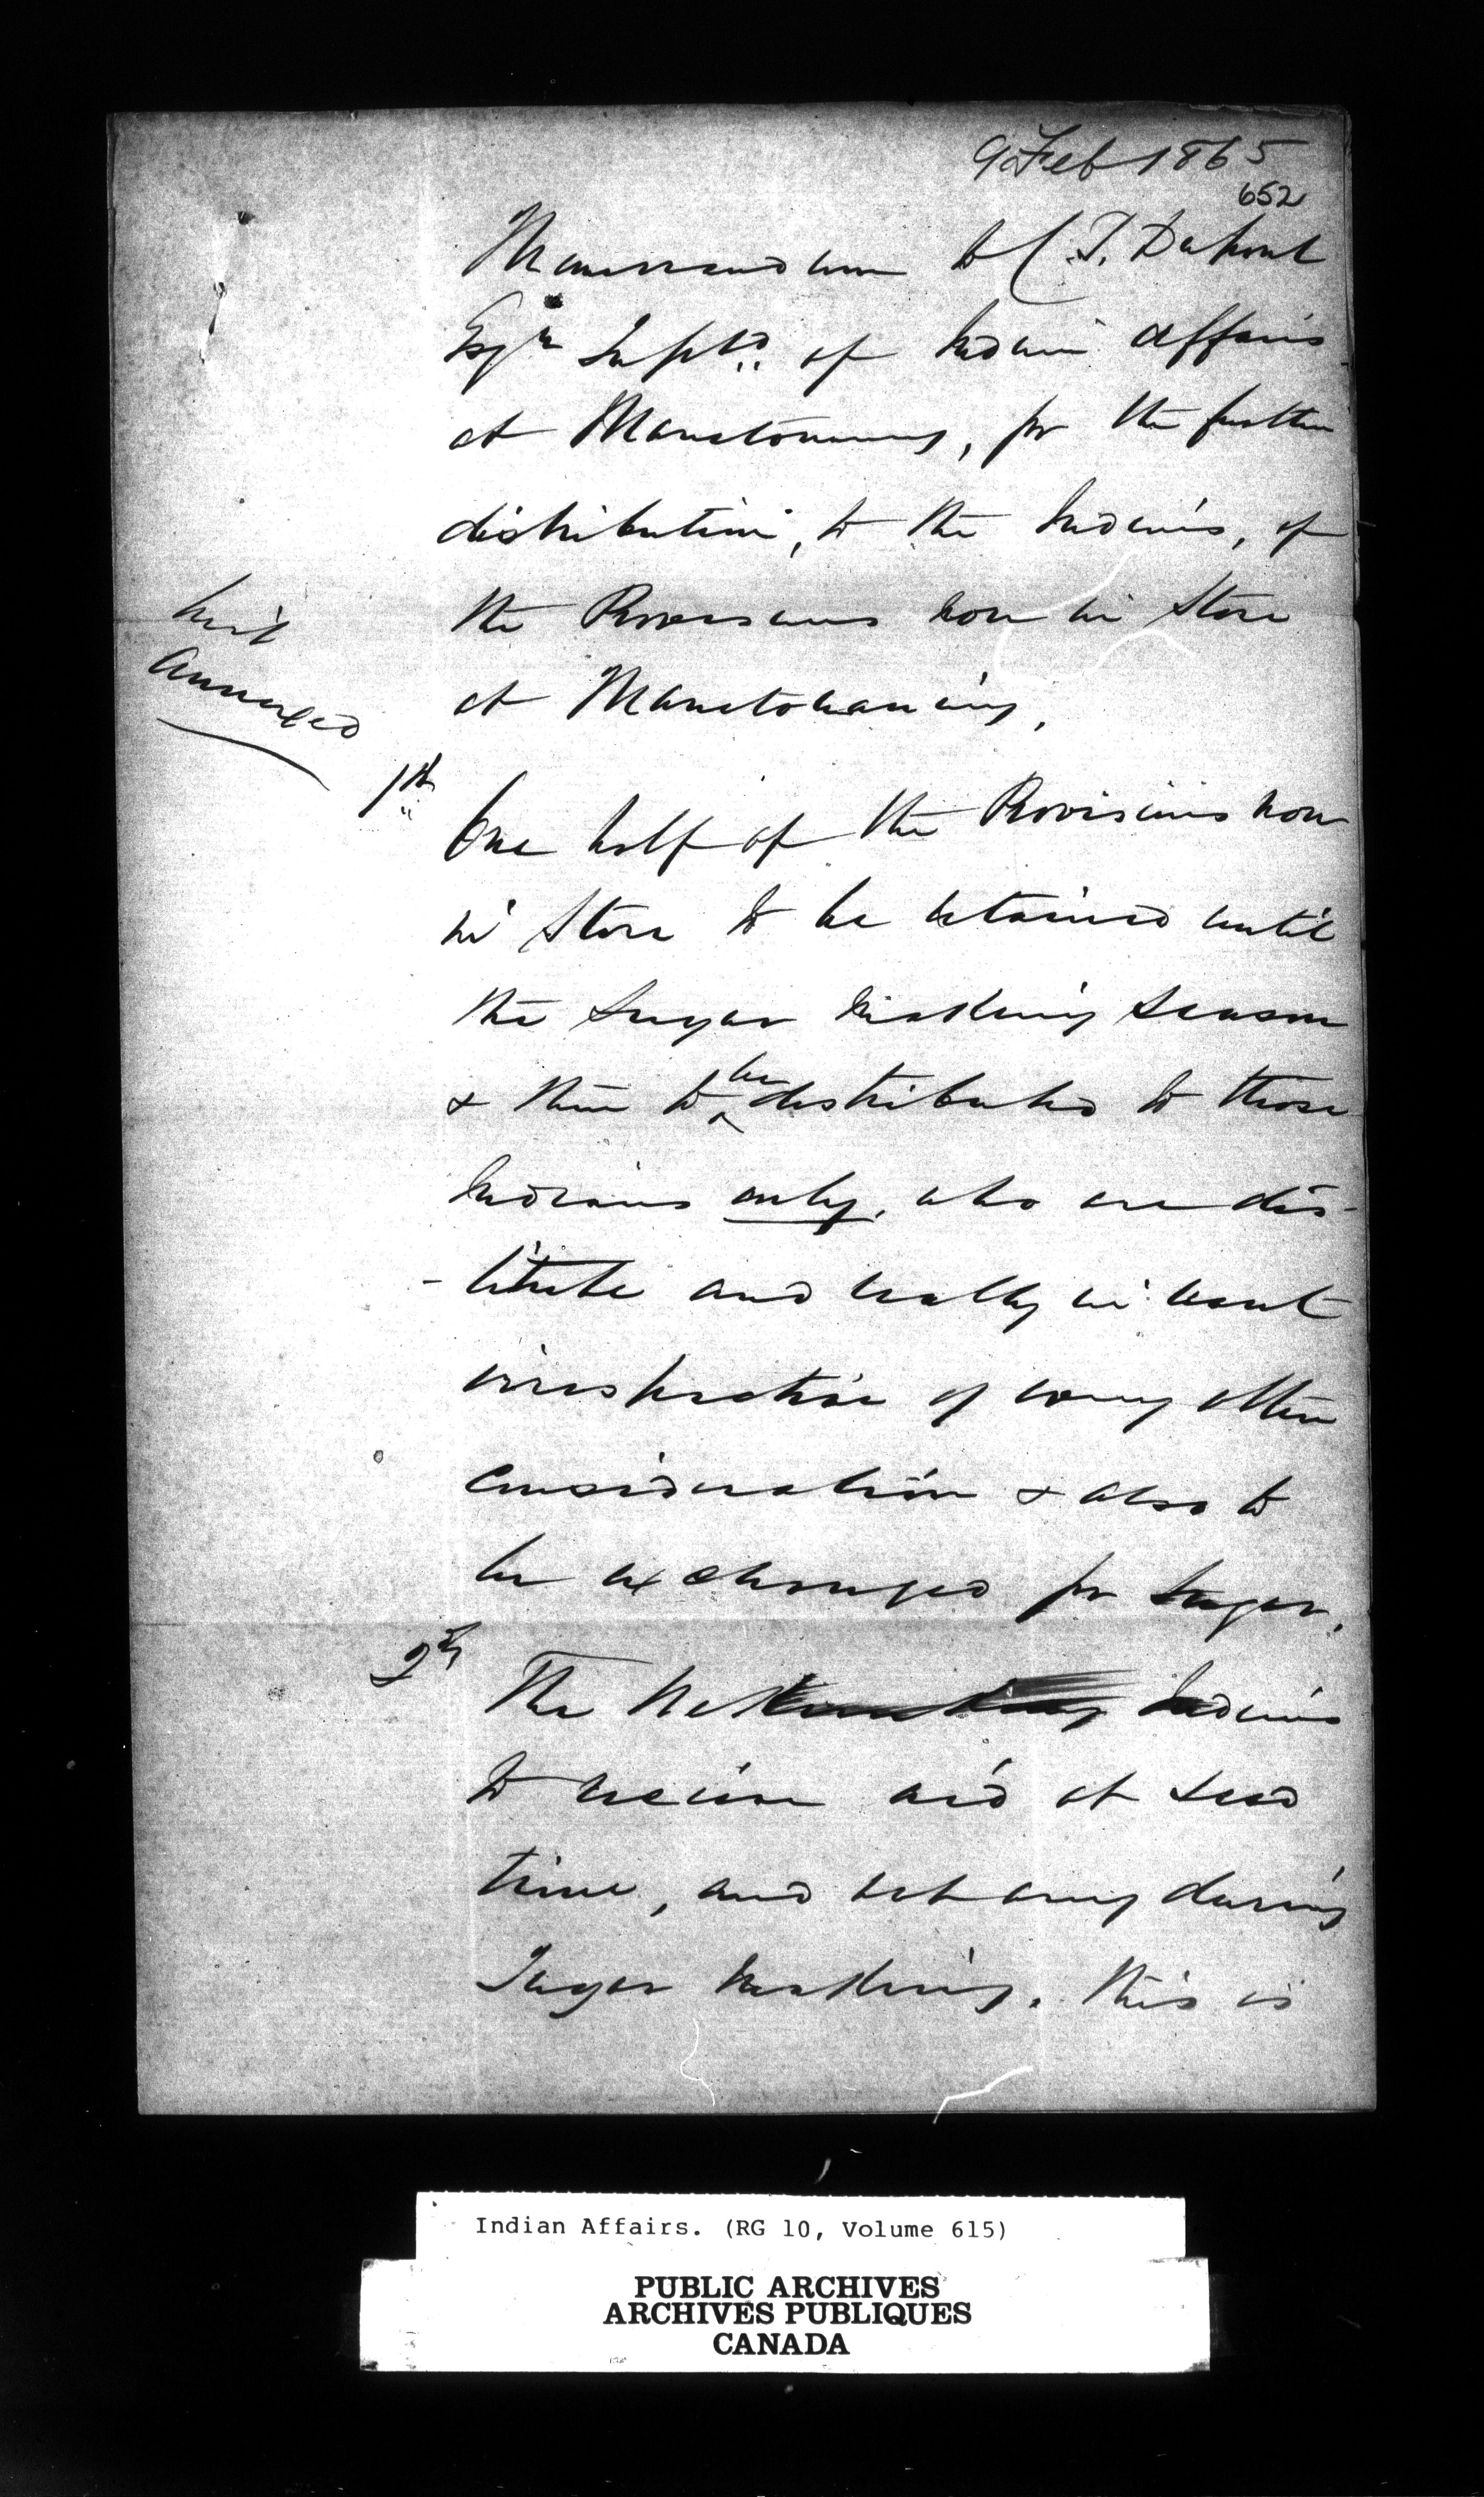 9 Feb 1865
652
Memorandum to C. T. Dupont
Esqr Supt. of Indian Affairs
at Manetowaning, for the further
distribution, to the Indians, of
the Provisions now in Store
at Manetowaning,
annexed
1st
One half of the Provisions now
in Store to be retained until
the Sugar making season
& then to be distributed to those
Indians only, who are des-
-titute and really in want
irrespective of any other
consideration & also to
be exchanged for Sugar.
2d
The Indians
to receive aid at seed
time, and not any during
Sugar making. This is
Indian Affairs. (RG 10, Volume 615)
PUBLIC ARCHIVES
ARCHIVES PUBLIQUES
CANADA